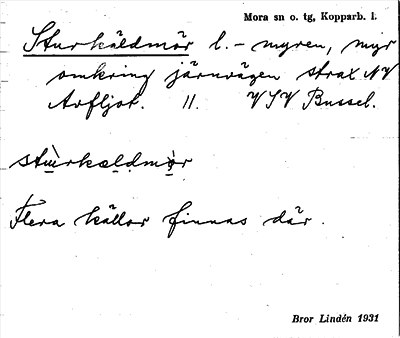 Mora sn o. tg, Kopparb. l.
Sturkäldmör l. - myren, myr
omkring järnvägen strax NV
Avfljot. 11. VSV Bussel.
stùrkældmǫr
Flera källor finnas där.
Bror Lindén 1931